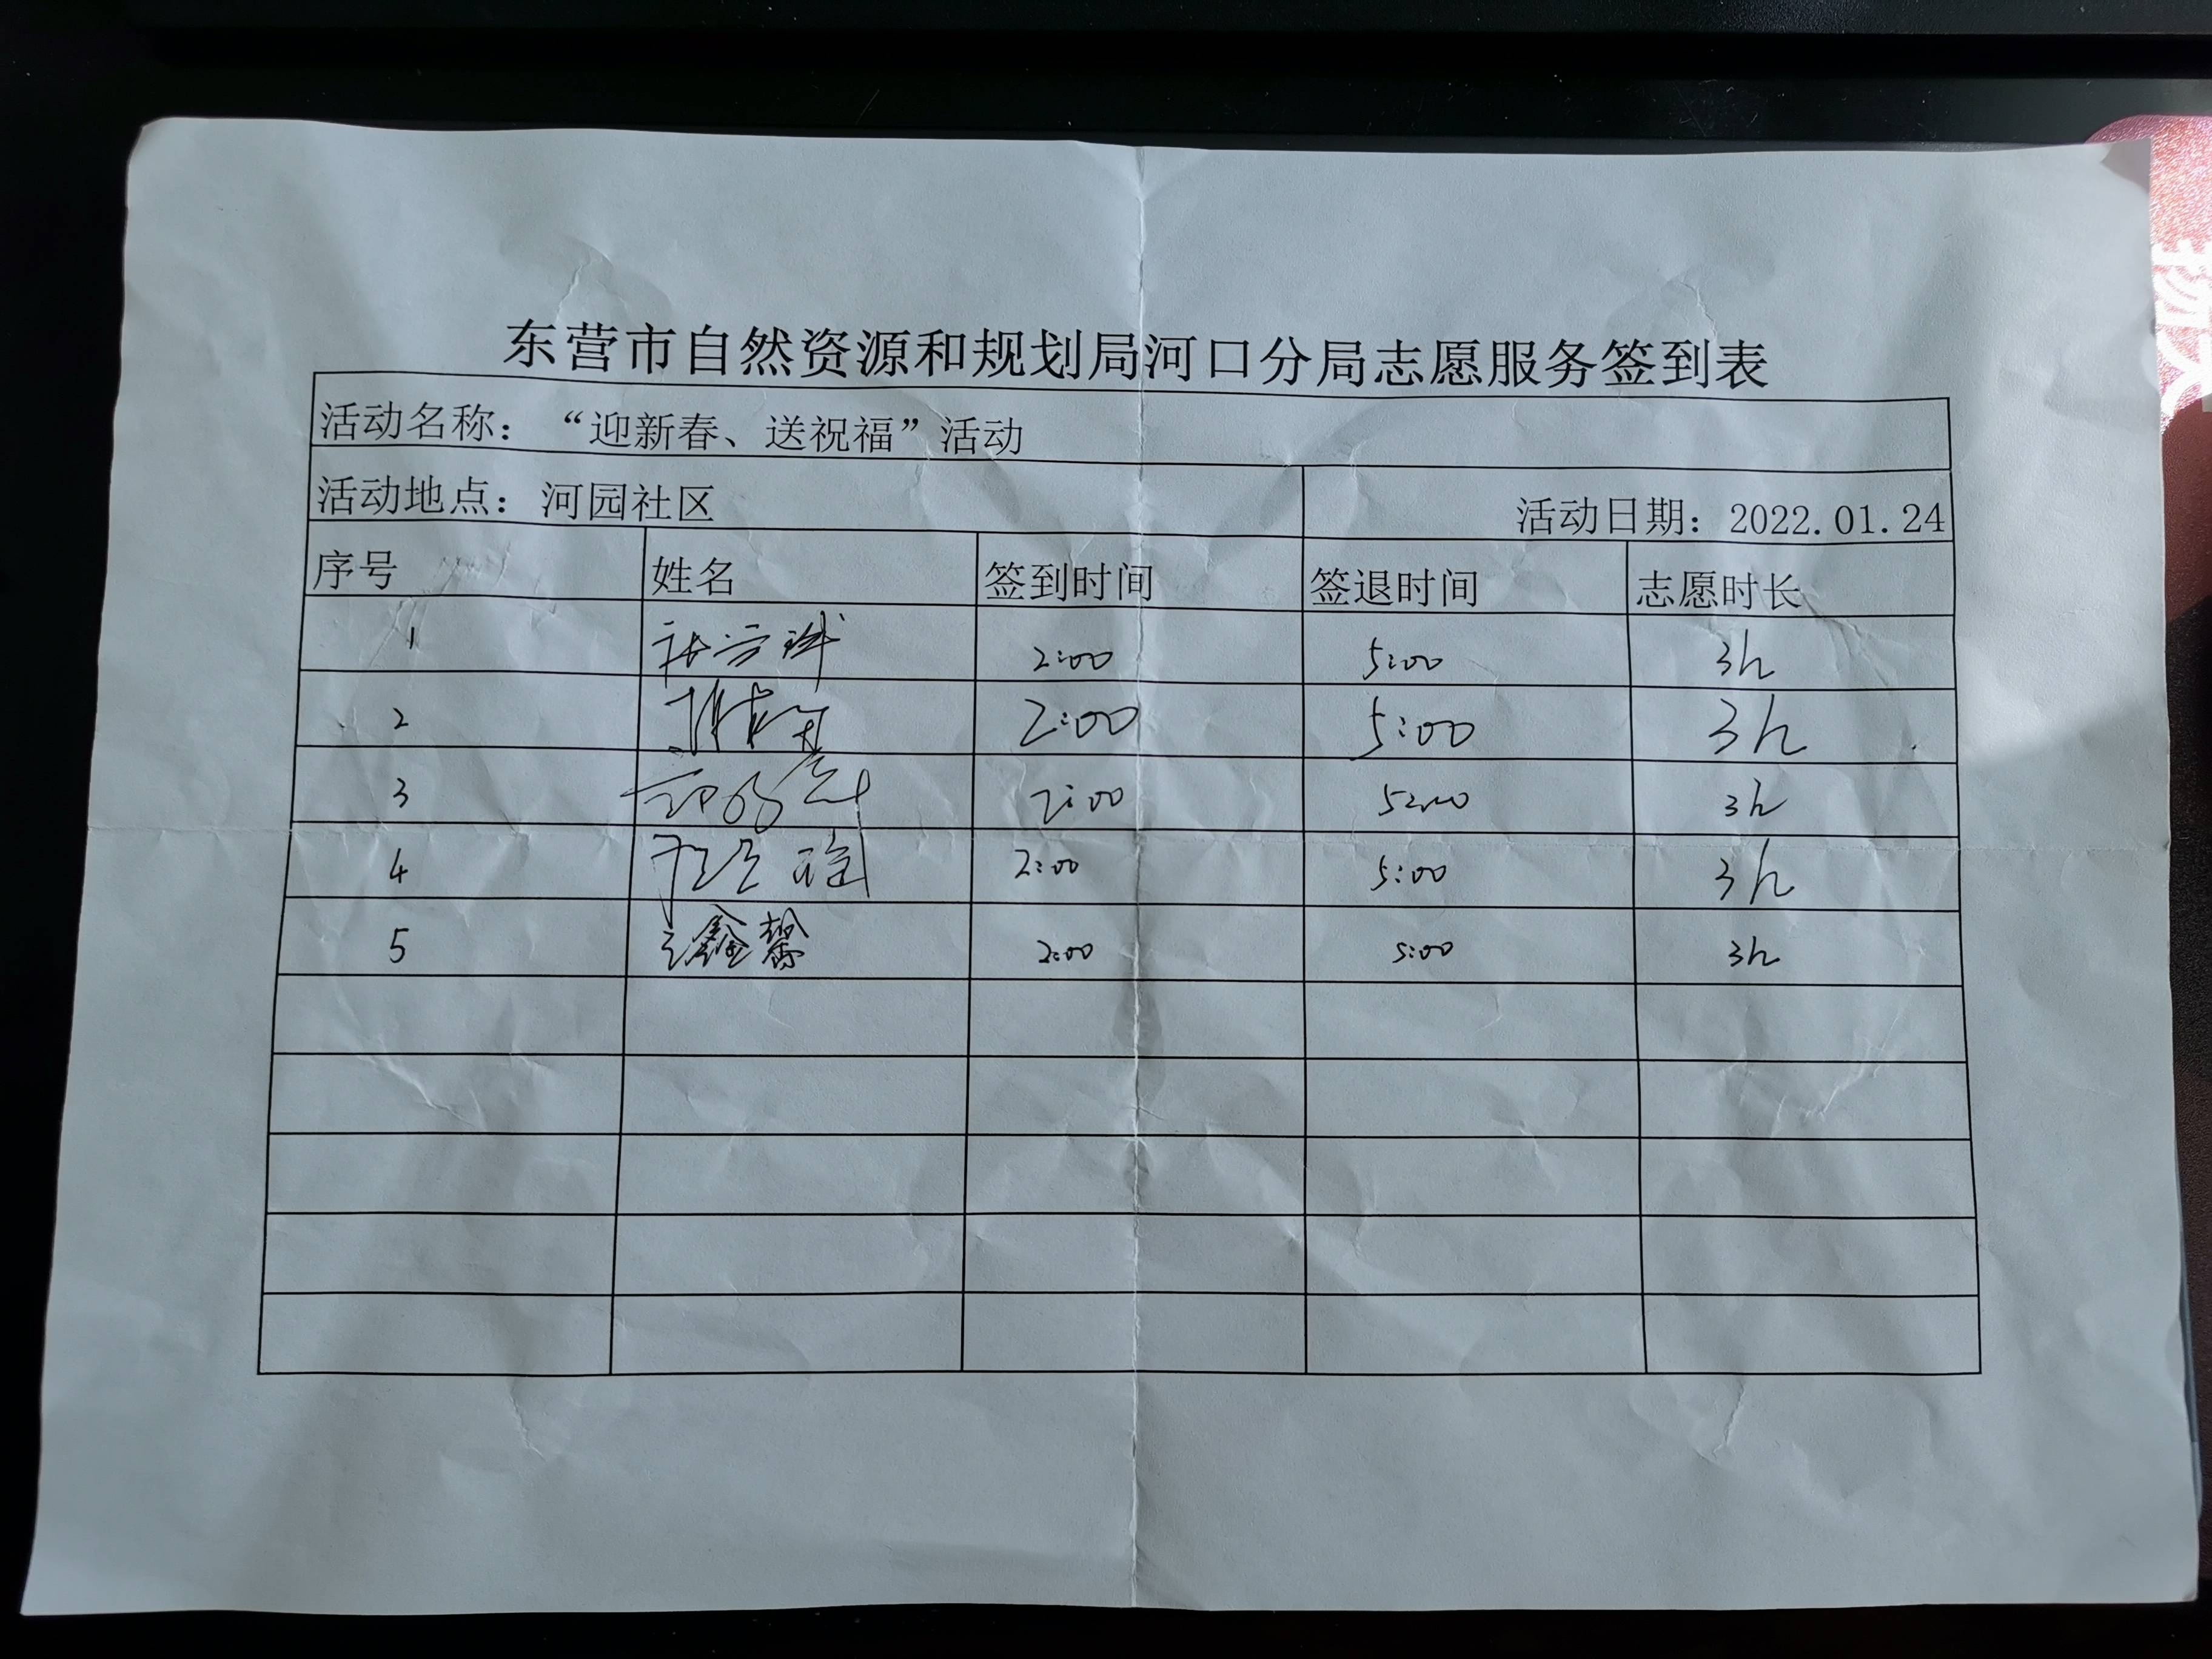 东营市自然资源和规划局河口分局志愿服务签到表
活动名称：“迎新春、送祝福”活动
活动地点：河园社区 活动日期：2022.01.24
序号 姓名 签到时间 签退时间 志愿时长
1 2:00 5:00 3h
2 2:00 5:00 3h
3 2:00 5:00 3h
4 2:00 5:00 3h
5 鑫馨 2:00 5:00 3h